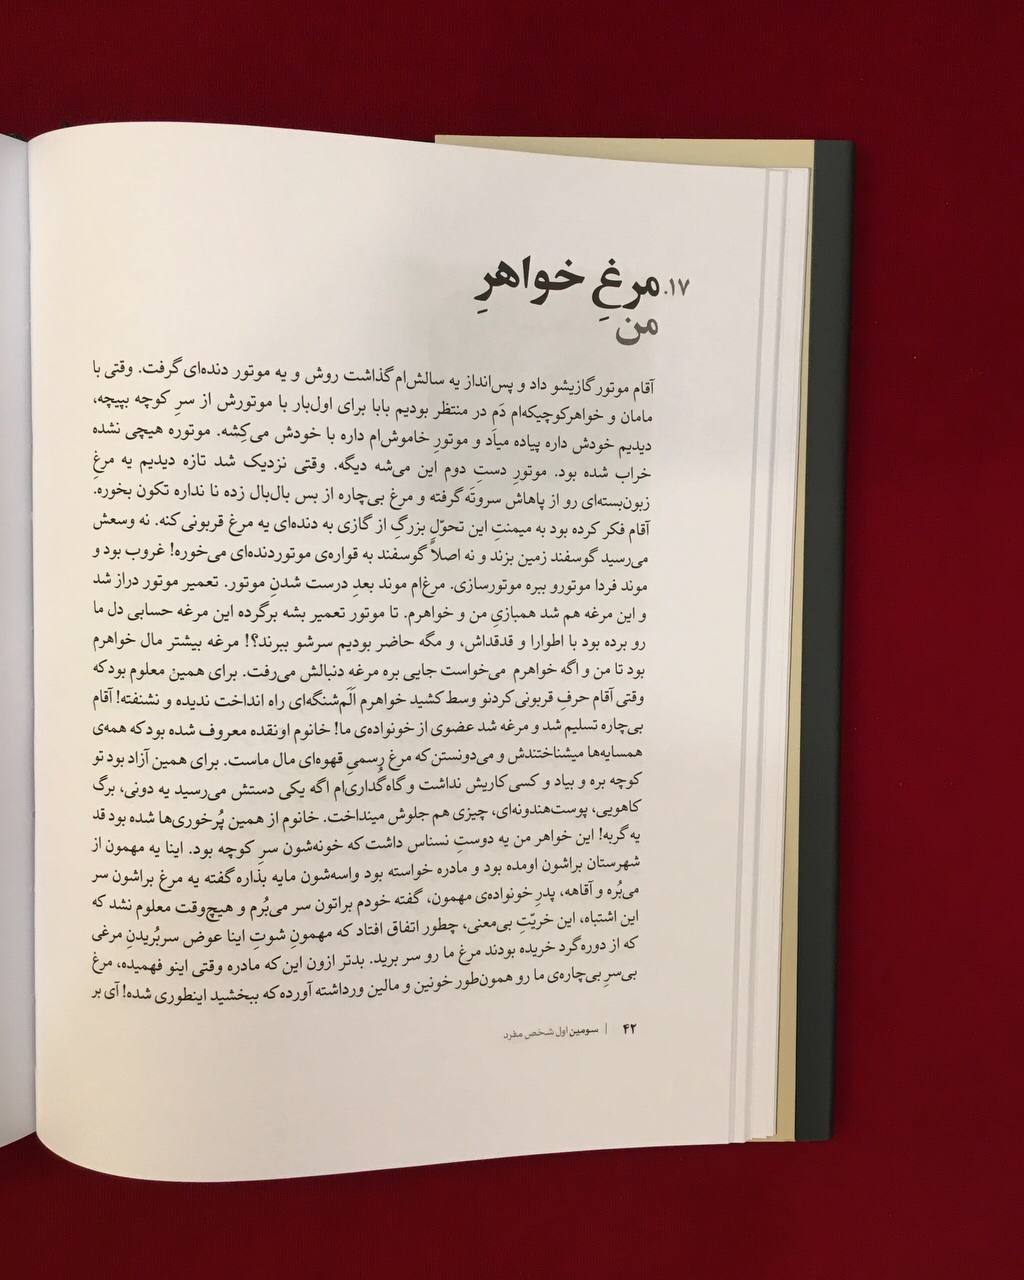 ۱۷. مرغِ خواهرِ
من
آقام موتور گازیشو داد و پس‌انداز یه سالش‌ام گذاشت روش و یه موتور دنده‌ای گرفت. وقتی با
مامان و خواهرکوچیکه‌ام دَم در منتظر بودیم بابا برای اول‌بار با موتورش از سرِ کوچه بپیچه،
دیدیم خودش داره پیاده میآد و موتورِ خاموش‌ام داره با خودش می‌کِشه. موتوره هیچی نشده
خراب شده بود. موتورِ دستِ دوم این می‌شه دیگه. وقتی نزدیک شد تازه دیدیم یه مرغِ
زبون‌بسته‌ای رو از پاهاش سروته گرفته و مرغ بی‌چاره از بس بال‌بال زده نا نداره تکون بخوره.
آقام فکر کرده بود به میمنتِ این تحوّلِ بزرگِ از گازی به دنده‌ای یه مرغ قربونی کنه. نه وسعش
می‌رسید گوسفند زمین بزند و نه اصلاً گوسفند به قواره‌ی موتوردنده‌ای می‌خوره! غروب بود و
موند فردا موتورو ببره موتورسازی. مرغ‌ام موند بعدِ درست شدنِ موتور. تعمیر موتور دراز شد
و این مرغه هم شد همبازیِ من و خواهرم. تا موتور تعمیر بشه برگرده این مرغه حسابی دل ما
رو برده بود با اطوارا و قدقداش، و مگه حاضر بودیم سرشو ببرند؟! مرغه بیشتر مال خواهرم
بود تا من و اگه خواهرم می‌خواست جایی بره مرغه دنبالش می‌رفت. برای همین معلوم بود که
وقتی آقام حرفِ قربونی کردنو وسط کشید خواهرم اَلَم‌شنگه‌ای راه انداخت ندیده و نشنفته! آقام
بی‌چاره تسلیم شد و مرغه شد عضوی از خونواده‌ی ما! خانوم اونقده معروف شده بود که همه‌ی
همسایه‌ها میشناختندش و می‌دونستن که مرغِ رسمیِ قهوه‌ای مال ماست. برای همین آزاد بود تو
کوچه بره و بیاد و کسی کاریش نداشت و گاه‌گداری‌ام اگه یکی دستش می‌رسید یه دونی، برگ
کاهویی، پوست‌هندونه‌ای، چیزی هم جلوش مینداخت. خانوم از همین پُرخوری‌ها شده بود قد
یه گربه! این خواهر من یه دوستِ نسناس داشت که خونه‌شون سرِ کوچه بود. اینا یه مهمون از
شهرستان براشون اومده بود و مادره خواسته بود واسه‌شون مایه بذاره گفته یه مرغ براشون سر
می‌بُره و آقاهه، پدرِ خونواده‌ی مهمون، گفته خودم براتون سر می‌بُرم و هیچ‌وقت معلوم نشد که
این اشتباه، این خریّتِ بی‌معنی، چطور اتفاق افتاد که مهمونِ شوتِ اینا عوض سربُریدنِ مرغی
که از دوره‌گرد خریده بودند مرغ ما رو سر برید. بدتر ازون این‌که مادره وقتی اینو فهمیده، مرغ
بی‌سرِ بی‌چاره‌ی ما رو همون‌طور خونین و مالین ورداشته آورده که ببخشید اینطوری شده! آی بر
۴۲ | سومین اول شخص مفرد